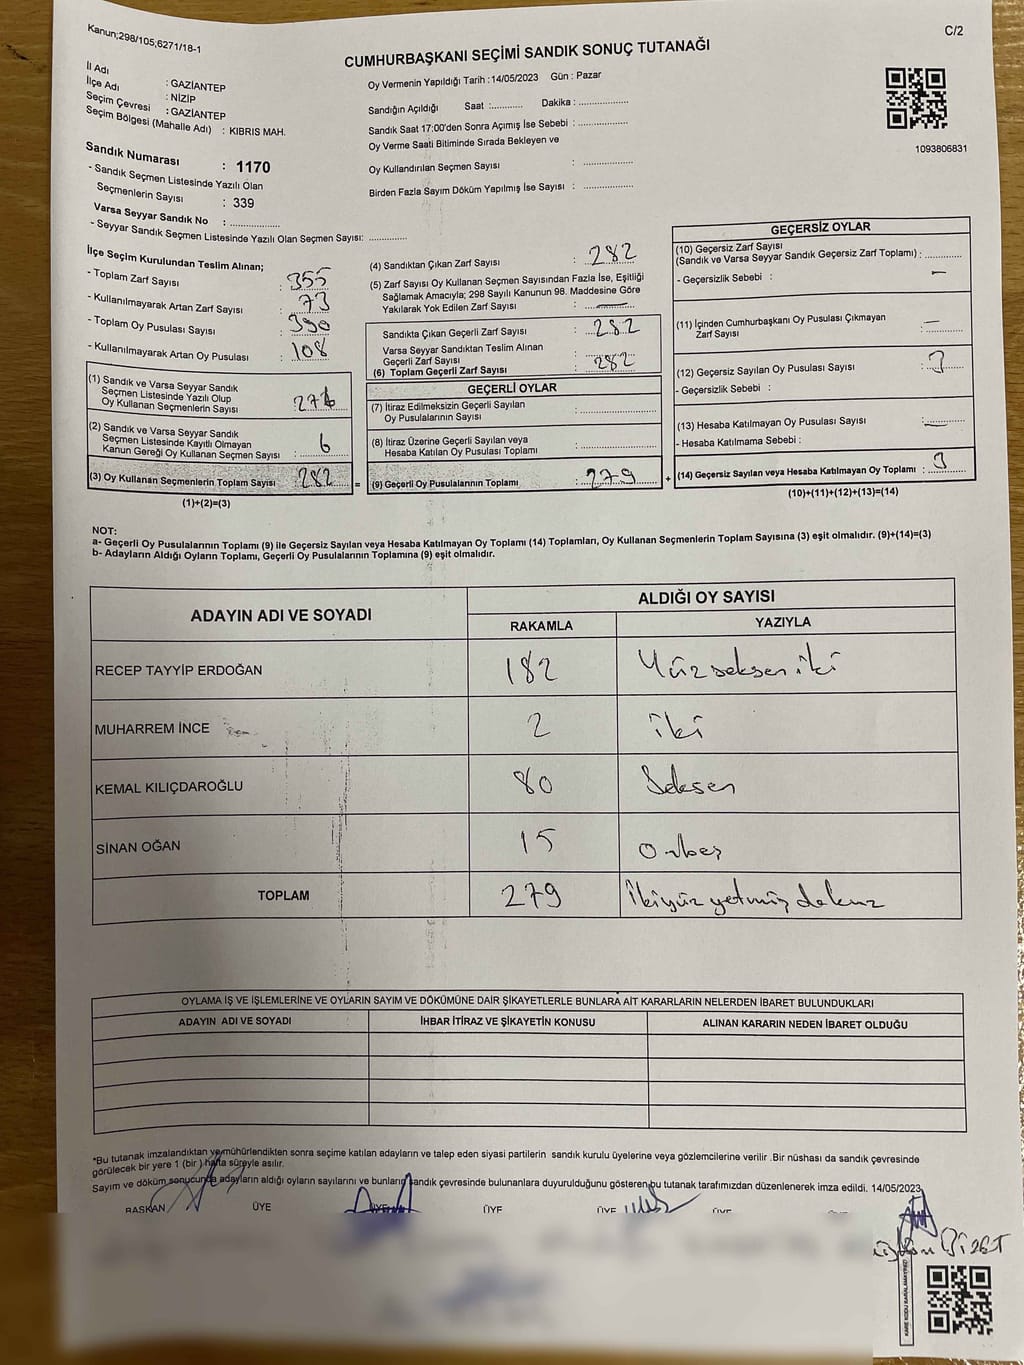 Kanun;298/105,6271/18-1
C/2
CUMHURBAŞKANI SEÇİMİ SANDIK SONUÇ TUTANAĞI
İl Adı : GAZİANTEP
İlçe Adı : NİZİP
Seçim Çevresi : GAZİANTEP
Seçim Bölgesi (Mahalle Adı) : KIBRIS MAH.
Sandık Numarası : 1170
- Sandık Seçmen Listesinde Yazılı Olan
Seçmenlerin Sayısı : 339
Varsa Seyyar Sandık No : ................
- Seyyar Sandık Seçmen Listesinde Yazılı Olan Seçmen Sayısı: ............
Oy Vermenin Yapıldığı Tarih : 14/05/2023 Gün : Pazar
Sandığın Açıldığı Saat :........... Dakika : ................
Sandık Saat 17:00'den Sonra Açımış İse Sebebi : ................
Oy Verme Saati Bitiminde Sırada Bekleyen ve
Oy Kullandırılan Seçmen Sayısı : ................
Birden Fazla Sayım Döküm Yapılmış İse Sayısı : ................
1093806831
İlçe Seçim Kurulundan Teslim Alınan;
- Toplam Zarf Sayısı : 355
- Kullanılmayarak Artan Zarf Sayısı : 73
- Toplam Oy Pusulası Sayısı : 390
- Kullanılmayarak Artan Oy Pusulası : 108
(1) Sandık ve Varsa Seyyar Sandık
Seçmen Listesinde Yazılı Olup
Oy Kullanan Seçmenlerin Sayısı : 276
(2) Sandık ve Varsa Seyyar Sandık
Seçmen Listesinde Kayıtlı Olmayan
Kanun Gereği Oy Kullanan Seçmen Sayısı : 6
(3) Oy Kullanan Seçmenlerin Toplam Sayısı : 282 =
(1)+(2)=(3)
(4) Sandıktan Çıkan Zarf Sayısı : 282
(5) Zarf Sayısı Oy Kullanan Seçmen Sayısından Fazla İse, Eşitliği
Sağlamak Amacıyla; 298 Sayılı Kanunun 98. Maddesine Göre
Yakılarak Yok Edilen Zarf Sayısı : —
Sandıkta Çıkan Geçerli Zarf Sayısı : 282
Varsa Seyyar Sandıktan Teslim Alınan
Geçerli Zarf Sayısı
(6) Toplam Geçerli Zarf Sayısı : 282
GEÇERLİ OYLAR
(7) İtiraz Edilmeksizin Geçerli Sayılan
Oy Pusulalarının Sayısı : ................
(8) İtiraz Üzerine Geçerli Sayılan veya
Hesaba Katılan Oy Pusulası Toplamı : ................
(9) Geçerli Oy Pusulalarının Toplamı : 279 +
GEÇERSİZ OYLAR
(10) Geçersiz Zarf Sayısı
(Sandık ve Varsa Seyyar Sandık Geçersiz Zarf Toplamı) : ............
- Geçersizlik Sebebi : —
(11) İçinden Cumhurbaşkanı Oy Pusulası Çıkmayan
Zarf Sayısı : —
(12) Geçersiz Sayılan Oy Pusulası Sayısı : 3
- Geçersizlik Sebebi :
(13) Hesaba Katılmayan Oy Pusulası Sayısı : —
- Hesaba Katılmama Sebebi :
(14) Geçersiz Sayılan veya Hesaba Katılmayan Oy Toplamı : 3
(10)+(11)+(12)+(13)=(14)
NOT:
a- Geçerli Oy Pusulalarının Toplamı (9) ile Geçersiz Sayılan veya Hesaba Katılmayan Oy Toplamı (14) Toplamları, Oy Kullanan Seçmenlerin Toplam Sayısına (3) eşit olmalıdır. (9)+(14)=(3)
b- Adayların Aldığı Oyların Toplamı, Geçerli Oy Pusulalarının Toplamına (9) eşit olmalıdır.
ADAYIN ADI VE SOYADI ALDIĞI OY SAYISI
RAKAMLA YAZIYLA
RECEP TAYYİP ERDOĞAN 182 Yüzsekseniki
MUHARREM İNCE 2 iki
KEMAL KILIÇDAROĞLU 80 Seksen
SİNAN OĞAN 15 Onbeş
TOPLAM 279 İkiyüz yetmiş dokuz
OYLAMA İŞ VE İŞLEMLERİNE VE OYLARIN SAYIM VE DÖKÜMÜNE DAİR ŞİKAYETLERLE BUNLARA AİT KARARLARIN NELERDEN İBARET BULUNDUKLARI
ADAYIN ADI VE SOYADI İHBAR İTİRAZ VE ŞİKAYETİN KONUSU ALINAN KARARIN NEDEN İBARET OLDUĞU
*Bu tutanak imzalandıktan ve mühürlendikten sonra seçime katılan adayların ve talep eden siyasi partilerin sandık kurulu üyelerine veya gözlemcilerine verilir .Bir nüshası da sandık çevresinde
görülecek bir yere 1 (bir ) hafta süreyle asılır.
Sayım ve döküm sonucunda adayların aldığı oyların sayılarını ve bunların sandık çevresinde bulunanlara duyurulduğunu gösteren bu tutanak tarafımızdan düzenlenerek imza edildi. 14/05/2023
BAŞKAN ÜYE ÜYE ÜYE ÜYE ÜYE